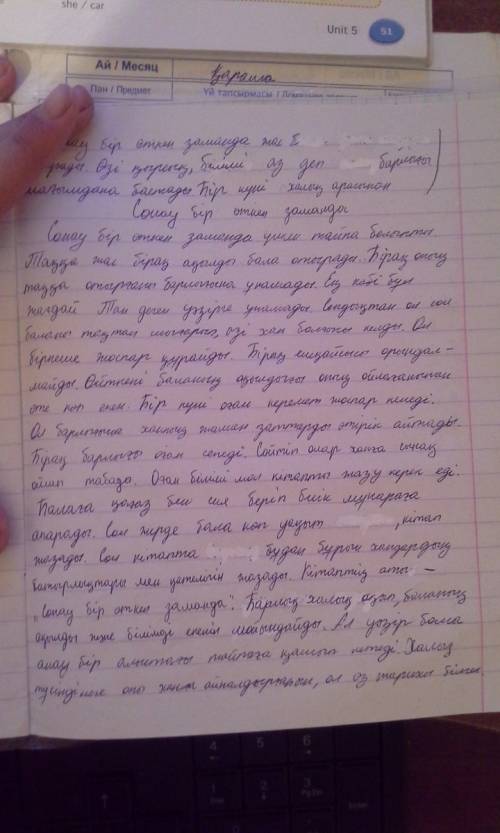 she / car
Unit 5 51
Ай / Месяц
Пән / Предмет Үй тапсырмасы
бір өткен заманда жас
Өзі қырсық, білімі аз деп барлығы
мазымдана бастады. Бір күні халық арасынан
Сонау бір өткен заманда
Сонау бір өткен заманда үлкен тайпа болыпты.
Таққа жас бірақ ақылды бала отырады. Бірақ оның
таққа отырғаны барлығына ұнамады. Ең көбі бұл
жағдай Тан деген уәзірге ұнамады. Сондықтан ол сол
баланы тақтан шығарып, өзі хан болғысы келді. Ол
бірнеше жоспар құрайды. Бірақ ешқайсысы орындал-
майды. Өйткені баланың ақылдығы оның ойлағанынан
өте көп екен. Бір күні оған керемет жоспар келеді.
Ол барлығына ханның жаман заттарды өтірік айтады.
Бірақ барлығы оған сенеді. Сөйтіп олар ханға сынақ
ойлап табады. Оған білімі мол кітапты жазу керек еді.
Балаға қағаз бен сия беріп биік мұнараға
апарады. Сол жерде бала көп уақыт кітап
жазады. Сол кітапта бұдан бұрын хандардың
батырлықтары мен қателігін жазады. Кітаптің аты -
"Сонау бір өткен заманда". Барлық халық оқып, баланың
ақылды және білімді екенін мойындайды. Ал уәзір болса
анау бір алыстағы тайпаға қашып кетеді. Халық
түсінді неге оны хан айналдырғанын, ол өз тарихы білген.
4 5 6
1 2 3